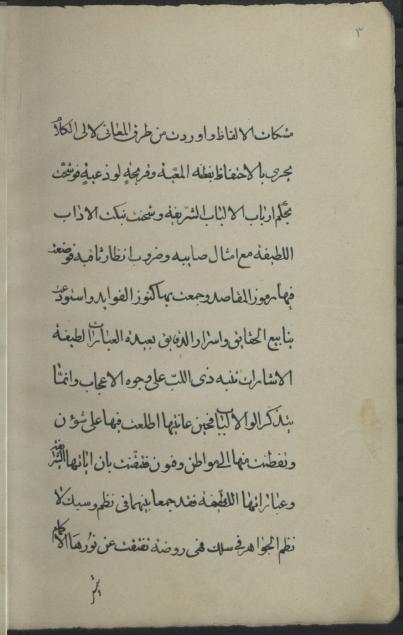 ٣
مشكات الالفاظ واوردت من طرف المعانى لالى الكلام
يجرى بالاحتفاظ بفطنة المعية وقريحة لوذعية فوشحت
بحكم ارباب الالباب الشريفة وشحنت بنكت الاداب
اللطيفة مع امثال صايبه وضروب انظار ثاقبه فوضعت
فيها رموز المقاصد وجمعت بها كنوز الفوايد واستودعت
ينابيع الحقايق واسرار الدقايق بعيده العبارات لطيفة
الاشارات تنبه ذى اللب على وجوه الاعجاب وانما
يتذكر الوالالباب فحين عاينتها اطلعت فيها على شؤن
وتفطنت منها المواطن وفنون فتيقنت بان اياتها
وعباراتها اللطيفة فقد جمعا بينهما فى نظم وسبك لا
نظم الجواهر فى سلك فهى روضة تفتقت عن نورها الاكمام